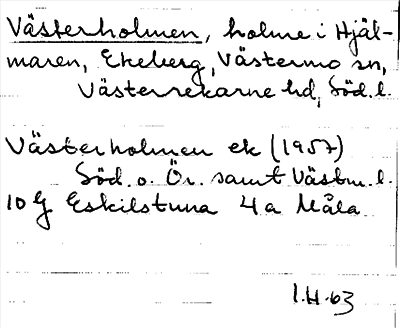 Västerholmen, holme i Hjäl-
maren, Ekeberg, Västermo sn,
Västerrekarne hd, Söd. l.
Västerholmen ek (1957)
Söd. o. Ör. samt Västm. l.
10 G Eskilstuna 4 a Måla
1.H.63